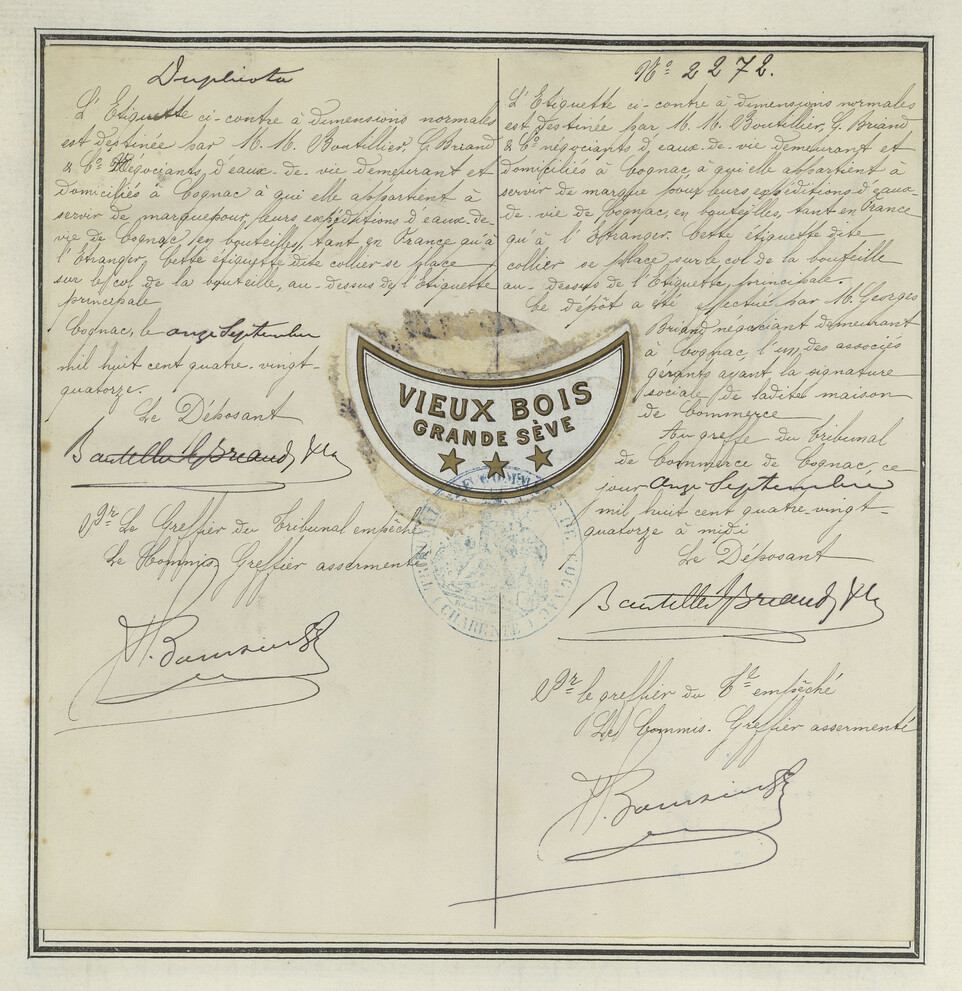 Duplicata
L'Etiquette ci-contre à dimensions normales
est destinée par M. M. Boutillier, G. Briand
& Cie Négociants d'eaux-de-vie demeurant et
domiciliés à Cognac à qui elle appartient à
servir de marque pour leurs expéditions d'eaux-de-
vie de Cognac, en bouteilles, tant en France qu'à
l'Etranger, Cette etiquette dite collier se place
sur le col de la bouteille, au-dessus de l'Etiquette
principale
Cognac, le onze Septembre
mil huit cent quatre-vingt-
quatorze.
Le Déposant
Boutillier G Briand & Cie
Pr Le Greffier du Tribunal empêché
Le Commis Greffier assermenté
No 2272.
L'Etiquette ci-contre à dimensions normales
est destinée par M. M. Boutillier, G. Briand
& Cie négociants d'eaux-de-vie demeurant et
domiciliés à Cognac, à qui elle appartient à
servir de marque pour leurs expéditions d'eaux-
de-vie de Cognac, en bouteilles, tant en France
qu'à l'Etranger. Cette etiquette dite
collier se place sur le col de la bouteille
au-dessus de l'Etiquette principale.
Le dépôt a été effectué par M. Georges
Briand négociant demeurant
à Cognac, l'un des associés
gérants ayant la signature
sociale de ladite maison
de Commerce
Au greffe du Tribunal
de Commerce de Cognac, ce
jour Onze Septembre
mil huit cent quatre-vingt-
quatorze à midi
Le Déposant
Boutillier G Briand & Cie
Pr le greffier du Tal empêché
Le Commis-Greffier assermenté
VIEUX BOIS
GRANDE SÈVE
TRIBUNAL DE COMMERCE DE COGNAC
(CHARENTE)